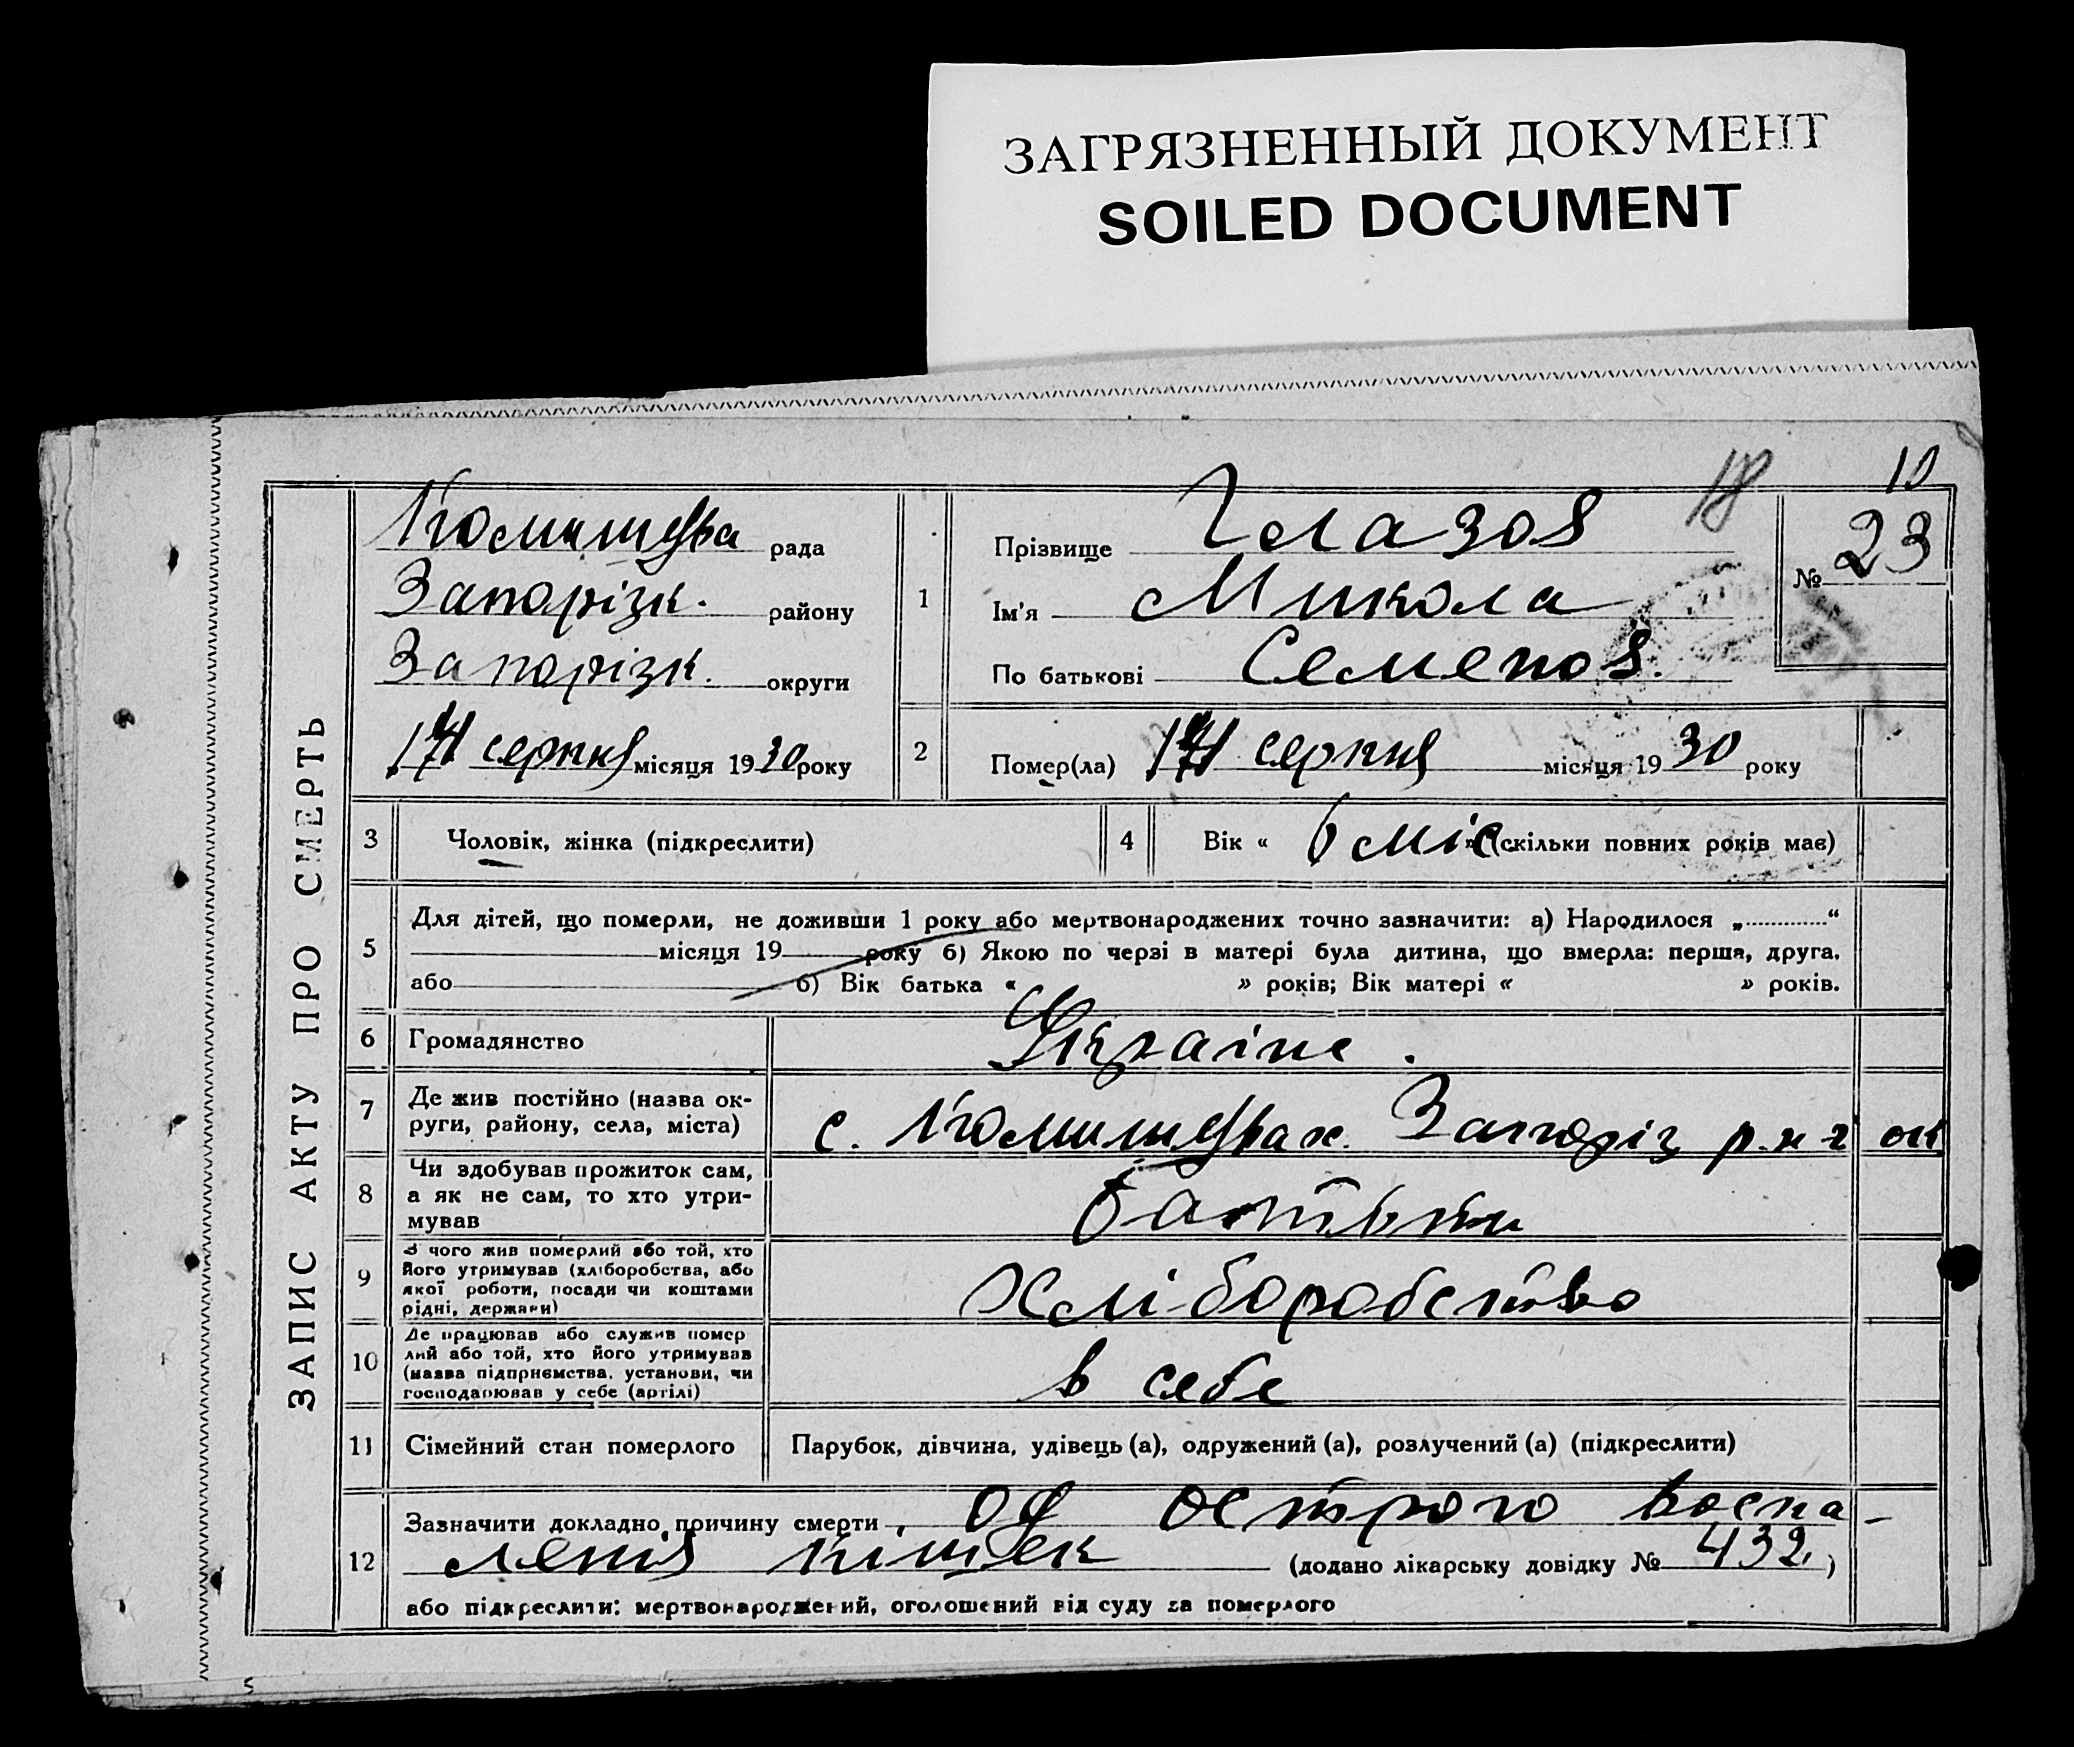 ЗАГРЯЗНЕННЫЙ ДОКУМЕНТ
SOILED DOCUMENT
18
10
ЗАПИС АКТУ ПРО СМЕРТЬ
Комишува рада
Запорізк. району
Запорізк. округи
серпня місяця 1930 року
1
Прізвище Глазов
Ім'я Микола
По батькові Семенов.
№ 23
2
Помер(ла) серпня місяця 1930 року
3
Чоловік, жінка (підкреслити)
4
Вік « 6 міс » (скільки повних років має)
5
Для дітей, що померли, не доживши 1 року або мертвонароджених точно зазначити: а) Народилося „ “
місяця 19 року б) Якою по черзі в матері була дитина, що вмерла: перша, друга.
або б) Вік батька « » років; Вік матері « » років.
6
Громадянство
Украіне.
7
Де жив постійно (назва ок-
руги, району, села, міста)
с. Комишувах. Запоріз р-н г ок
8
Чи здобував прожиток сам,
а як не сам, то хто утри-
мував
батьки
9
З чого жив померлий або той, хто
його утримував (хліборобства, або
якої роботи, посади чи коштами
рідні, держави)
Хліборобство
10
Де працював або служив помер
лий або той, хто його утримував
(назва підприємства, установи, чи
господарював у себе (артілі)
в себе
11
Сімейний стан померлого
Парубок, дівчина, удівець (а), одружений (а), розлучений (а) (підкреслити)
12
Зазначити докладно причину смерти од острого воспа-
ленія кишек (додано лікарську довідку № 432.)
або підкреслити: мертвонароджений, оголошений від суду за померлого